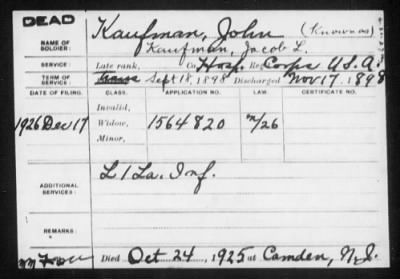 DEAD
Kaufman, John (Known as)
NAME OF SOLDIER:
Kaufman, Jacob L.
SERVICE:
Late rank, Co. Hosp. Reg. Corps U.S.A.
TERM OF SERVICE:
Sept 18, 1898 Discharged Nov 17, 1898
DATE OF FILING. CLASS. APPLICATION NO. LAW. CERTIFICATE NO.
Invalid,
1926 Dec 17 Widow, 1564820 n/26
Minor,
ADDITIONAL SERVICES:
L 1 La. Inf.
REMARKS:
Died Oct 24, 1925 at Camden, N.J.